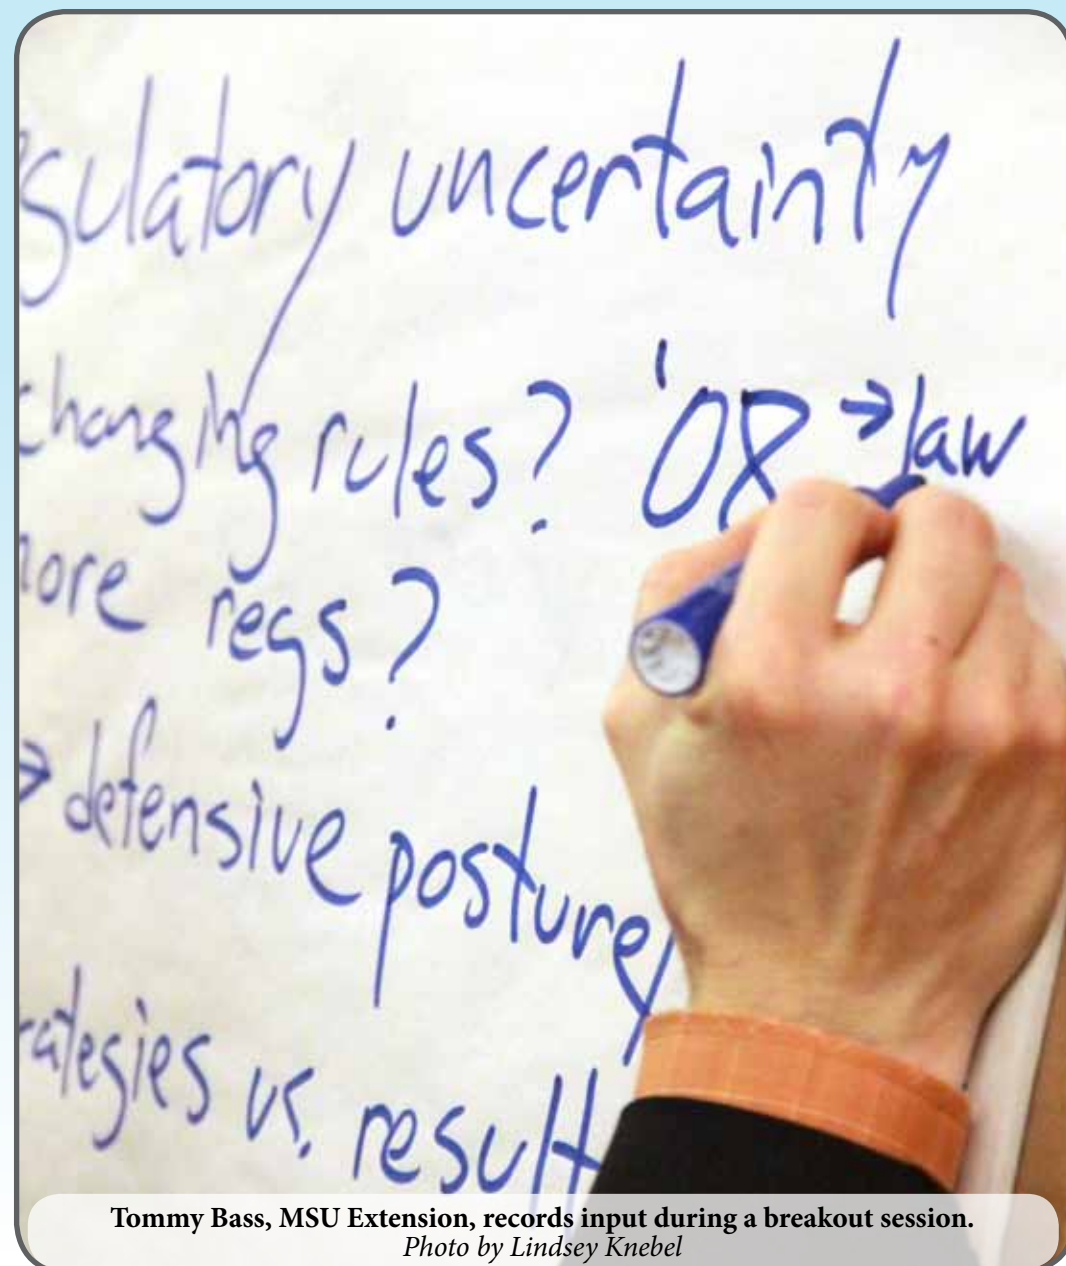 gulatory uncertainty
changing rules? '08 → law
more regs?
→ defensive posture
rategies vs. result
Tommy Bass, MSU Extension, records input during a breakout session.
Photo by Lindsey Knebel